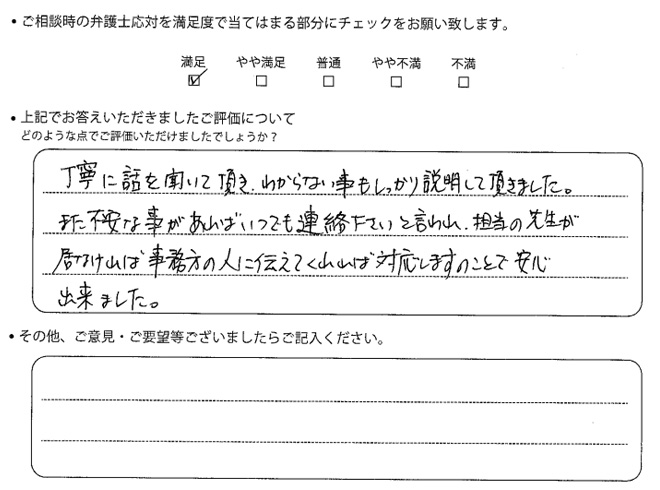 • ご相談時の弁護士応対を満足度で当てはまる部分にチェックをお願い致します。
満足 やや満足 普通 やや不満 不満
☑ □ □ □ □
• 上記でお答えいただきましたご評価について
どのような点でご評価いただけましたでしょうか？
丁寧に話を聞いて頂き、わからない事もしっかり説明して頂きました。
また不安な事があればいつでも連絡下さいと言われ、担当の先生が
居なければ事務方の人に伝えてくれれば対応しますのことで安心
出来ました。
• その他、ご意見・ご要望等ございましたらご記入ください。